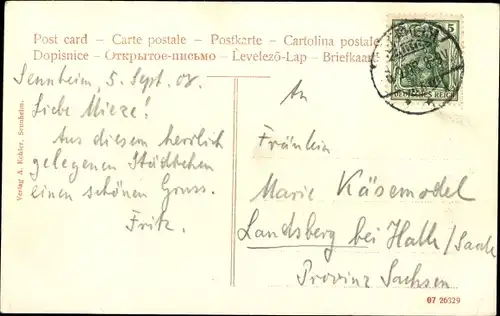 Post card - Carte postale - Postkarte - Cartolina postale
Dopisnice - Открытое-письмо - Levelező-Lap - Briefkaart
Sennheim, 5. Sept. 08.
Liebe Mieze!
Aus diesem herrlich
gelegenen Städtchen
einen schönen Gruss.
Fritz.
Verlag A. Kohler, Sennheim.
5
DEUTSCHES REICH
An
Fräulein
Marie Käsemodel
Landsberg bei Halle/Saale
Provinz Sachsen
07 26329